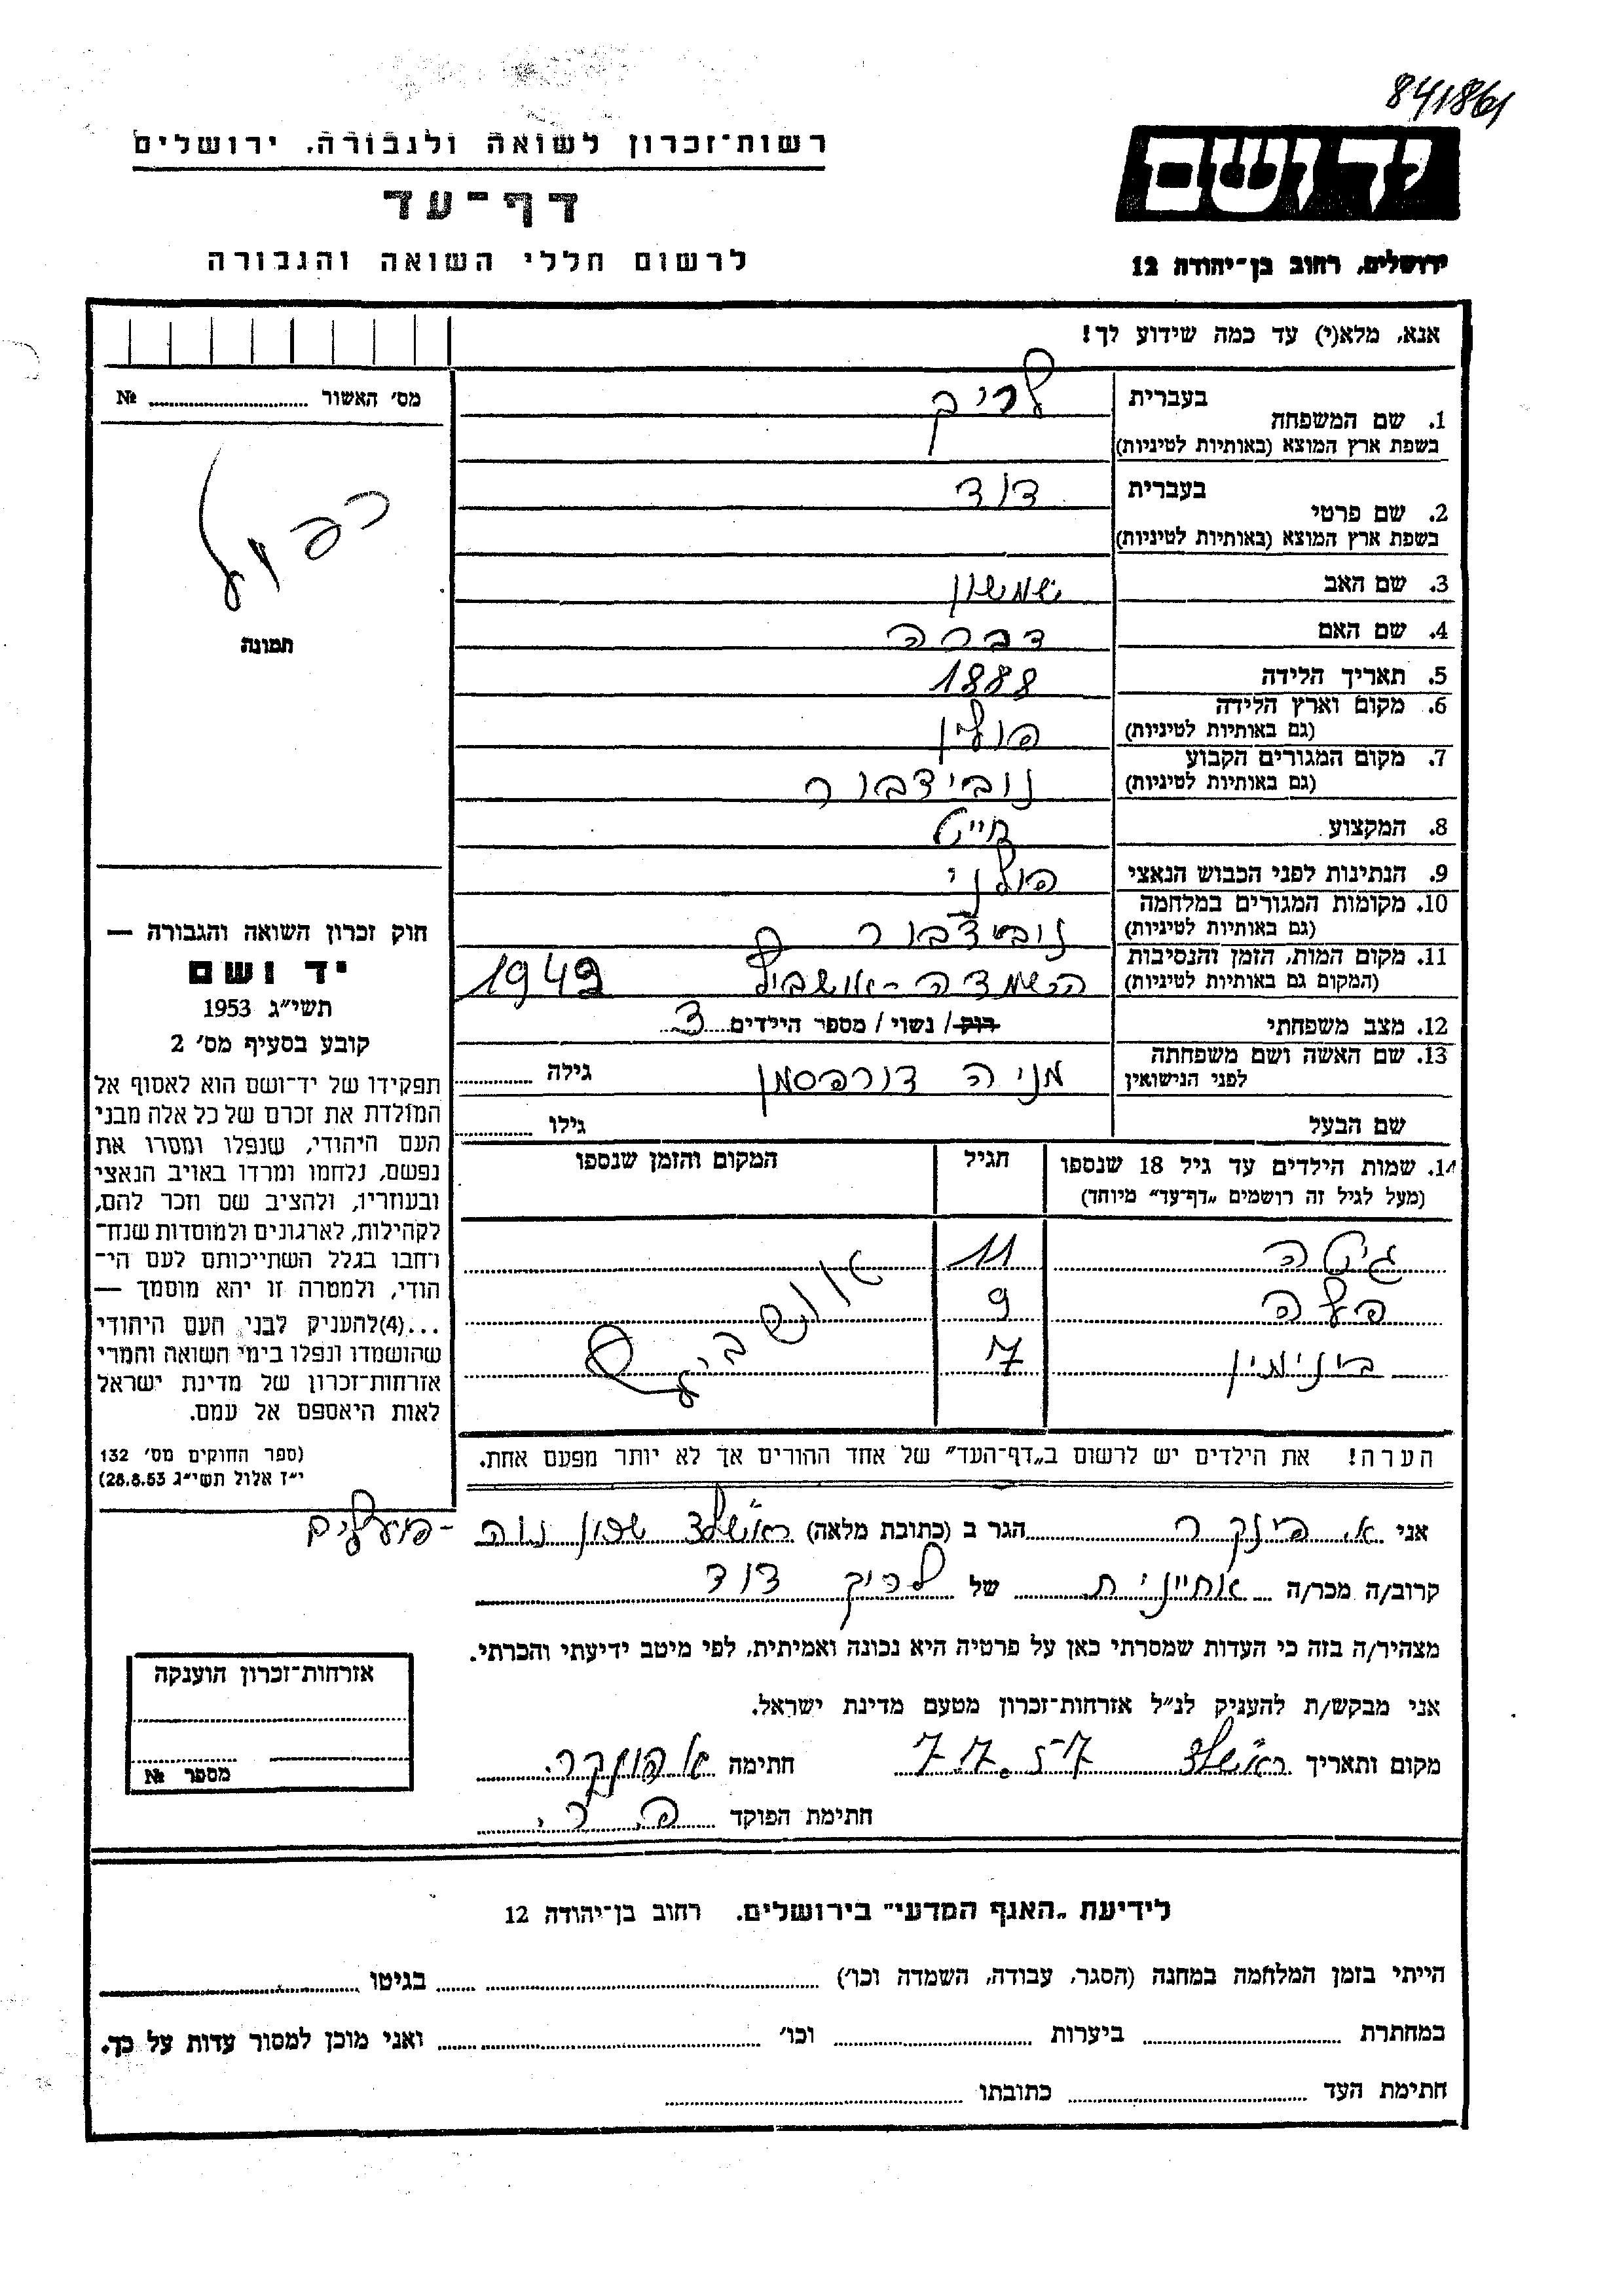 841861
רשות־זכרון לשואה ולגבורה. ירושלים
יד ושם
דף־עד
לרשום חללי השואה והגבורה
ירושלים, רחוב בן־יהודה 12
אנא, מלא(י) עד כמה שידוע לך!
מס׳ האשור № 
כפול
תמונה
1. שם המשפחה בעברית לריך
בשפת ארץ המוצא (באותיות לטיניות)
2. שם פרטי בעברית דוד
בשפת ארץ המוצא (באותיות לטיניות)
3. שם האב שמשון
4. שם האם דברה
5. תאריך הלידה 1888
6. מקום וארץ הלידה פולין
(גם באותיות לטיניות)
7. מקום המגורים הקבוע נובידבור
(גם באותיות לטיניות)
8. המקצוע חייט
9. הנתינות לפני הכבוש הנאצי פולני
10. מקומות המגורים במלחמה נובידבור
(גם באותיות לטיניות)
11. מקום המות, הזמן והנסיבות השמדה - אושביץ 1942
(המקום גם באותיות לטיניות)
12. מצב משפחתי רוק / נשוי / מספר הילדים 3
13. שם האשה ושם משפחתה מניה דורפסמן גילה
לפני הנישואין
שם הבעל גילו
חוק זכרון השואה והגבורה —
יד ושם
תשי״ג 1953
קובע בסעיף מס׳ 2
תפקידו של יד־ושם הוא לאסוף אל
המולדת את זכרם של כל אלה מבני
העם היהודי, שנפלו ומסרו את
נפשם, נלחמו ומרדו באויב הנאצי
ובעוזריו, ולהציב שם וזכר להם,
לקהילות, לארגונים ולמוסדות שנח־
רחבו בגלל השתייכותם לעם הי־
הודי, ולמטרה זו יהא מוסמך —
...(4)להעניק לבני העם היהודי
שהושמדו ונפלו בימי השואה והמרי
אזרחות־זכרון של מדינת ישראל
לאות היאספם אל עמם.
(ספר החוקים מס׳ 132
י״ז אלול תשי״ג 28.8.53)
14. שמות הילדים עד גיל 18 שנספו הגיל המקום והזמן שנספו
(מעל לגיל זה רושמים „דף־עד״ מיוחד)
גיטה 11
פלה 9
בינימין 7
אושביץ
הערה! את הילדים יש לרשום ב„דף־העד״ של אחד ההורים אך לא יותר מפעם אחת.
אני א. פינקר הגר ב (כתובת מלאה) ראשל״צ שכון נוה - פועלים
קרוב/ה מכר/ה אחיינית של לריך דוד
מצהיר/ה בזה כי העדות שמסרתי כאן על פרטיה היא נכונה ואמיתית, לפי מיטב ידיעתי והכרתי.
אני מבקש/ת להעניק לנ״ל אזרחות־זכרון מטעם מדינת ישראל.
מקום ותאריך ראשל״צ 7.7.57 חתימה
חתימת הפוקד
אזרחות־זכרון הוענקה
מספר №
לידיעת „האגף המדעי״ בירושלים. רחוב בן־יהודה 12
הייתי בזמן המלחמה במחנה (הסגר, עבודה, השמדה וכו׳) בגיטו
במחתרת ביערות וכו׳ ואני מוכן למסור עדות על כך.
חתימת העד כתובתו